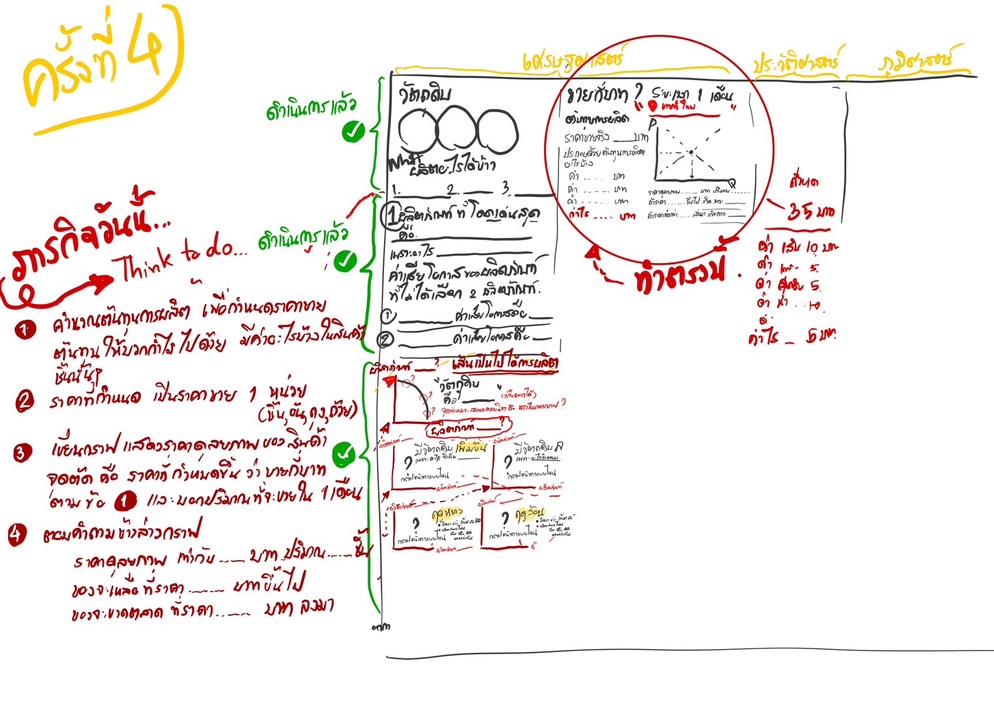 ครั้งที่ 4
เศรษฐศาสตร์
ประวัติศาสตร์
ภูมิศาสตร์
ดำเนินการแล้ว
วัตถุดิบ
ผลิตอะไรได้บ้าง
1. ____ 2. ____ 3. ____
ดำเนินการแล้ว
1 ผลิตภัณฑ์ที่โดดเด่นสุด
คือ
เพราะอะไร
ค่าเสียโอกาสของผลิตภัณฑ์
ที่ไม่ได้เลือก 2 ผลิตภัณฑ์.
1 ____ ค่าเสียโอกาสคือ ____
2 ____ ค่าเสียโอกาสคือ ____
ผลิตภัณฑ์ ___? เส้นเป็นไปได้การผลิต
"วัตถุดิบ
คือ ____"
ผลิตภัณฑ์ ____?
? มีวัตถุดิบเพิ่มขึ้น
? มีวัตถุดิบ
? ฤดูหนาว
? ฤดูร้อน
ขายกี่บาท? ระยะเวลา 1 เดือน
ต้นทุนการผลิต
ราคาขายจริง ____ บาท
ประกอบด้วยต้นทุนการผลิต
อะไรบ้าง
ค่า .... บาท
ค่า .... บาท
ค่า .... บาท
กำไร .... บาท
P
Q
ทำตรงนี้
35 บาท
ค่า เส้น 10 บาท
ค่า ... 5
ค่า ... 5
ค่า ... 10
กำไร _ 5 บาท.
ภารกิจวันนี้...
Think to do...
1 คำนวณต้นทุนการผลิต เพื่อกำหนดราคาขาย
ต้นทุน ให้บวกกำไรไปด้วย มีค่าอะไรบ้างในสินค้า
ชิ้นนั้นๆ
2 ราคาที่กำหนด เป็นราคาขาย 1 หน่วย
(ชิ้น, อัน, ถุง, ถ้วย)
3 เขียนกราฟ แสดงราคาดุลยภาพ ของ สินค้า
จุดตัด คือ ราคาที่กำหนดขึ้น ว่า ขายกี่บาท
ตามข้อ 1 และบอกปริมาณที่จะขายใน 1 เดือน
4 ตอบคำถามข้างล่างกราฟ
ราคาดุลยภาพ เท่ากับ ..... บาท ปริมาณ..... ชิ้น
ของจะเหลือที่ราคา ..... บาทขึ้นไป
ของจะขาดตลาด ที่ราคา..... บาท ลงมา